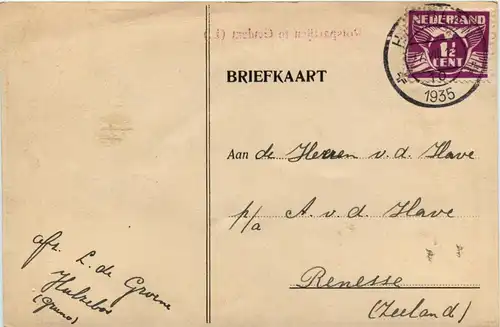 NEDERLAND
1½
CENT
1935
BRIEFKAART
Aan de Heeren v.d. Have
p/a A. v.d. Have
Renesse
(Zeeland)
afs. L. de Groene
Hulsebos